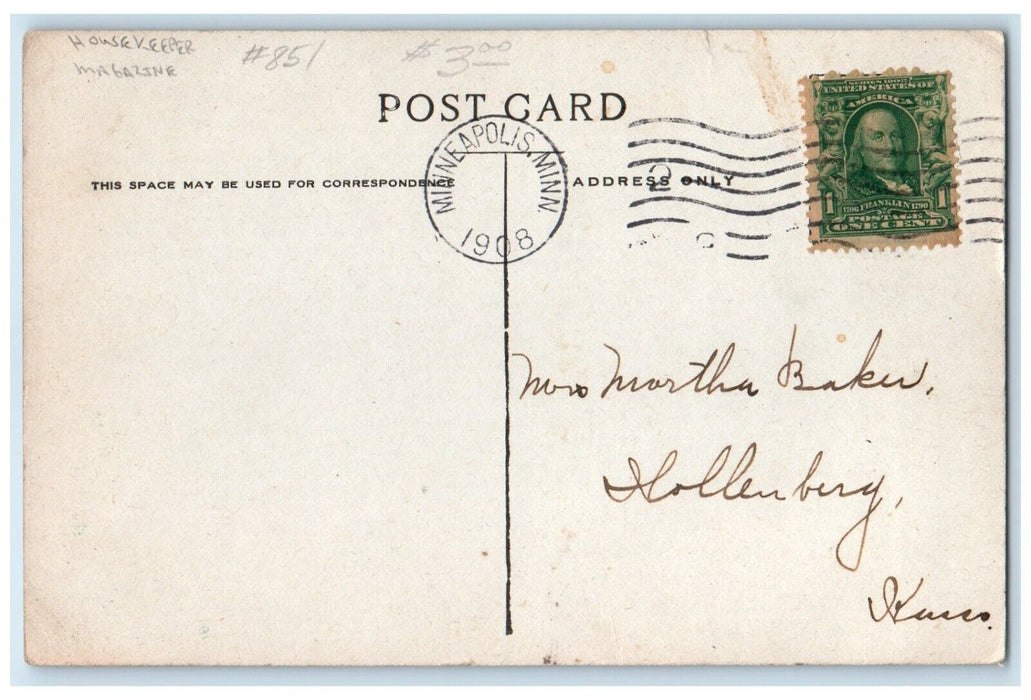 HOUSEKEEPER
MAGAZINE
#851
$3.00
POST CARD
MINNEAPOLIS, MINN.
1908
2
THIS SPACE MAY BE USED FOR CORRESPONDENCE
ADDRESS ONLY
SERIES 1902
UNITED STATES OF
AMERICA
1 1
1706 FRANKLIN 1790
POSTAGE
ONE CENT
Mrs Martha Baker,
Hollenberg,
Kans.